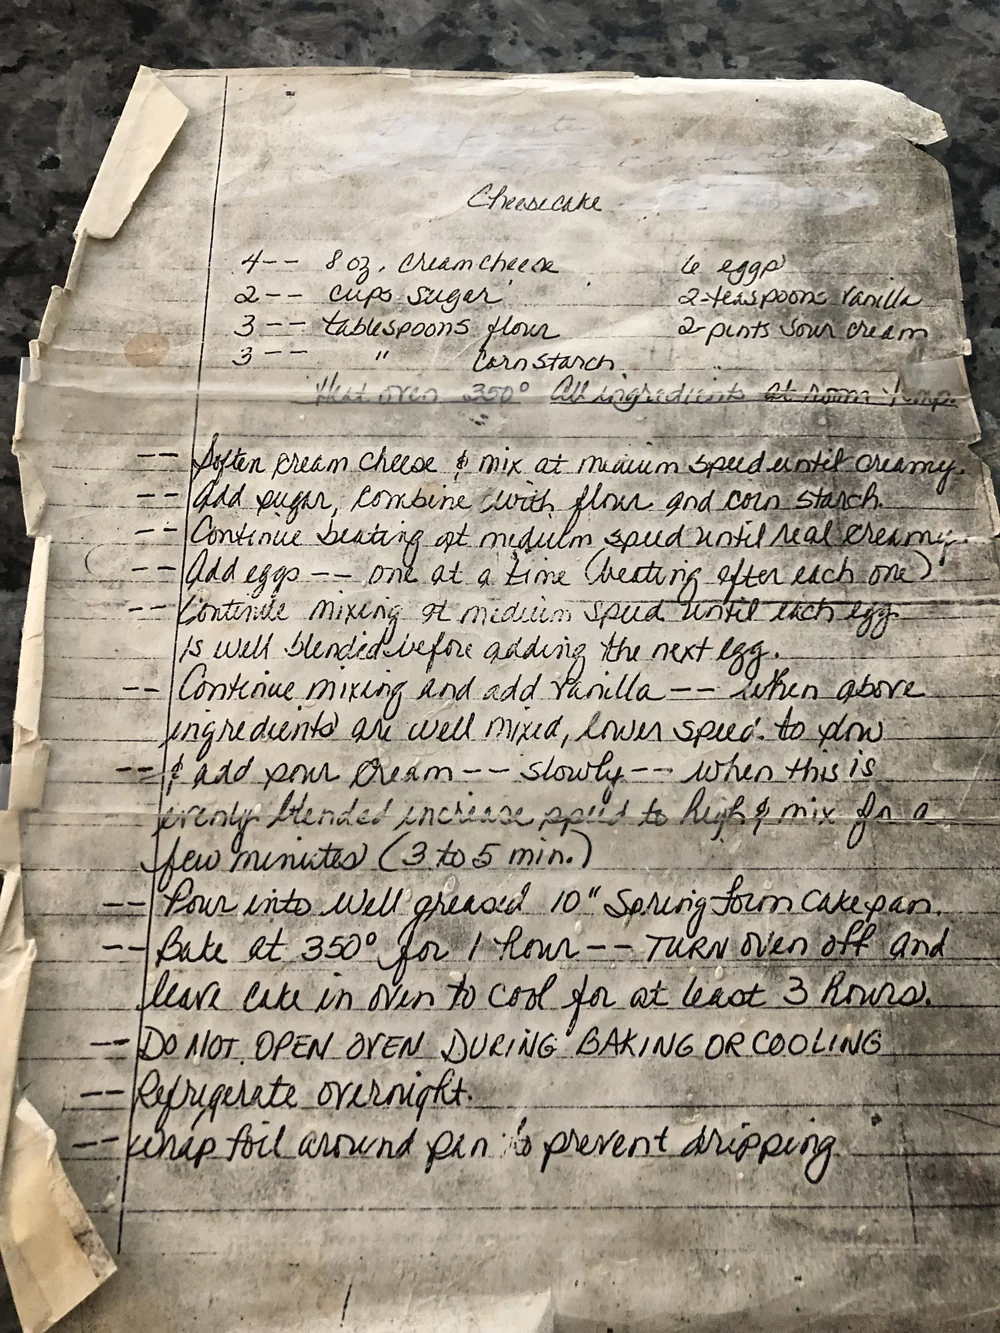 Cheesecake
4-- 8 oz. cream cheese 6 eggs
2-- cups sugar 2-teaspoons vanilla
3-- tablespoons flour 2-pints sour cream
3-- " corn starch
Heat oven 350° All ingredients at room temp.
-- Soften cream cheese & mix at medium speed until creamy.
-- Add sugar, combine with flour and corn starch.
-- Continue beating at medium speed until real creamy.
-- Add eggs -- one at a time (beating after each one)
-- Continue mixing at medium speed until each egg
is well blended before adding the next egg.
-- Continue mixing and add vanilla -- when above
ingredients are well mixed, lower speed to slow
-- & add sour cream -- slowly -- when this is
evenly blended increase speed to high & mix for a
few minutes (3 to 5 min.)
-- Pour into well greased 10" Spring form cake pan.
-- Bake at 350° for 1 hour -- TURN oven off and
leave cake in oven to cool for at least 3 hours.
-- DO NOT OPEN OVEN DURING BAKING OR COOLING
-- Refrigerate overnight.
-- wrap foil around pan to prevent dripping